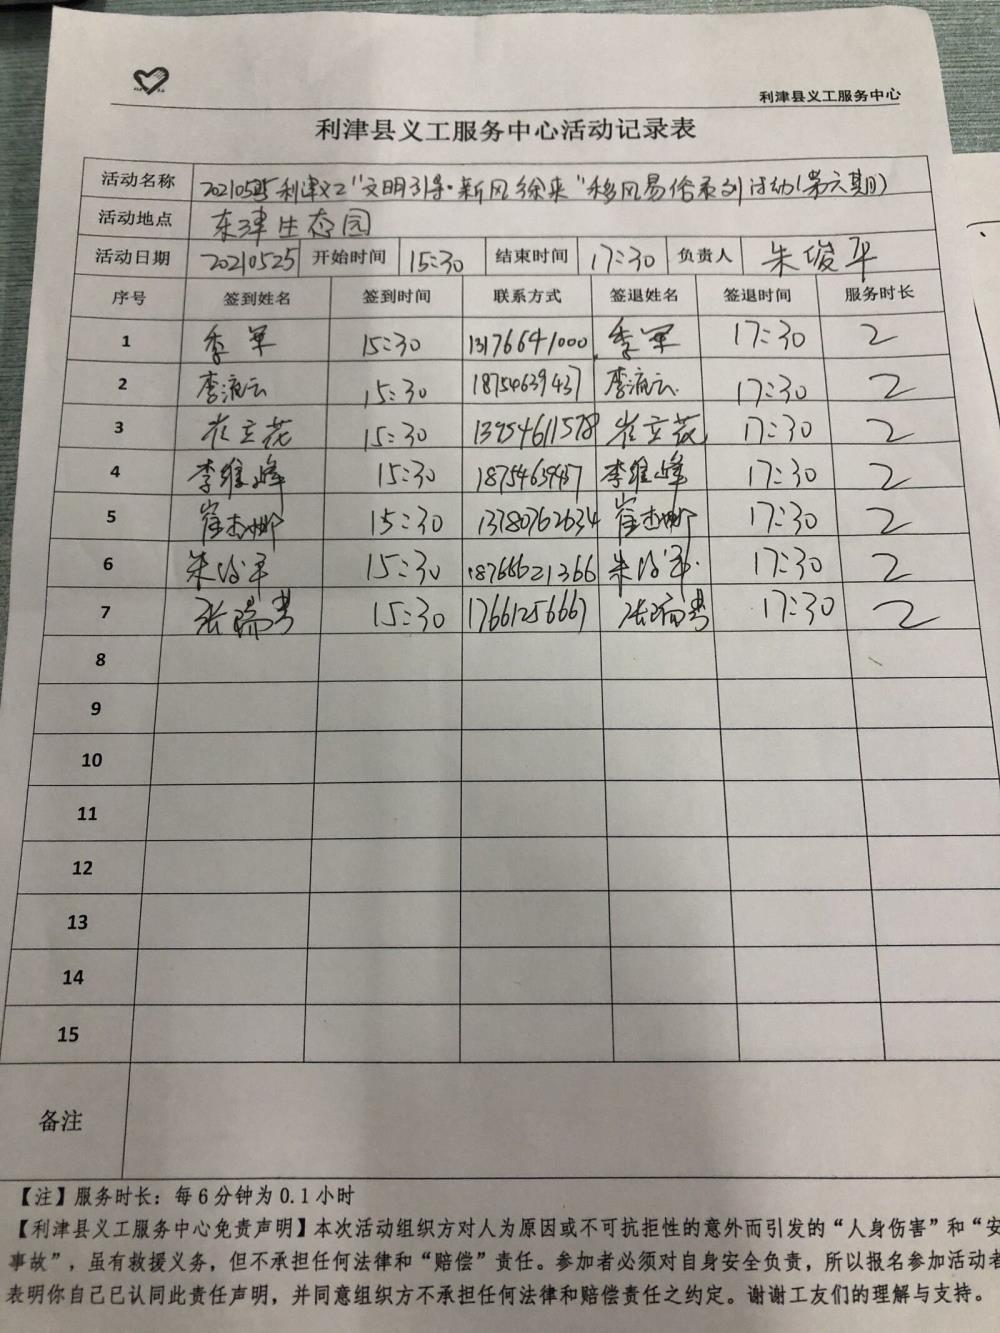 利津县义工服务中心
利津县义工服务中心活动记录表
活动名称 20210525利津义工"文明引导·新风徐来"移风易俗系列活动(第六期)
活动地点 东津生态园
活动日期 20210525 开始时间 15:30 结束时间 17:30 负责人 朱俊平
序号 签到姓名 签到时间 联系方式 签退姓名 签退时间 服务时长
1 季军 15:30 13176641000 季军 17:30 2
2 李流云 15:30 18754639437 李流云 17:30 2
3 崔立花 15:30 13954611578 崔立花 17:30 2
4 李维峰 15:30 17:30 2
李维峰
5 15:30 13780762634 17:30 2
6 15:30 18766621366 17:30 2
7 15:30 17661256667 17:30 2
8
9
10
11
12
13
14
15
备注
【注】服务时长：每6分钟为0.1小时
【利津县义工服务中心免责声明】本次活动组织方对人为原因或不可抗拒性的意外而引发的“人身伤害”和“安
事故”，虽有救援义务，但不承担任何法律和“赔偿”责任。参加者必须对自身安全负责，所以报名参加活动者
表明你自己已认同此责任声明，并同意组织方不承担任何法律和赔偿责任之约定。谢谢工友们的理解与支持。